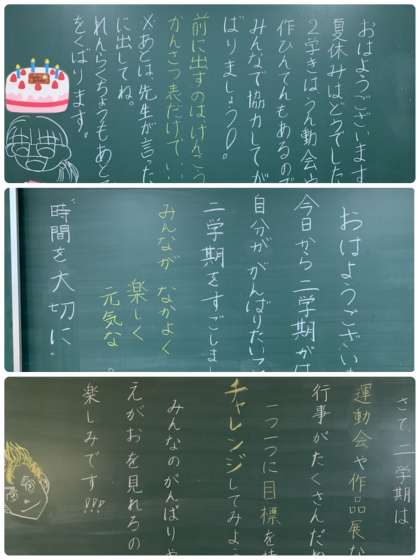 おはようございます
夏休みはどうでした
2学きはうん動会や
作ひんてんもあるので
みんなで協力してが
ばりましょう。
前に出すのはけんこう
かんさつ表だけで
※あとは、先生が言った
に出してね。
れんらくちょうもあとで
をくばります。
おはようござい
今日から二学期が
自分ががんばりたい
二学期をすごしま
みんながなかよく
楽しく
元気な
時間を大切に。
さて、二学期は、
運動会や作品展な
行事がたくさん
一つ一つに目標を
チャレンジしてみよ
みんなのがんばりや
えがおを見れるの
楽しみです!!!